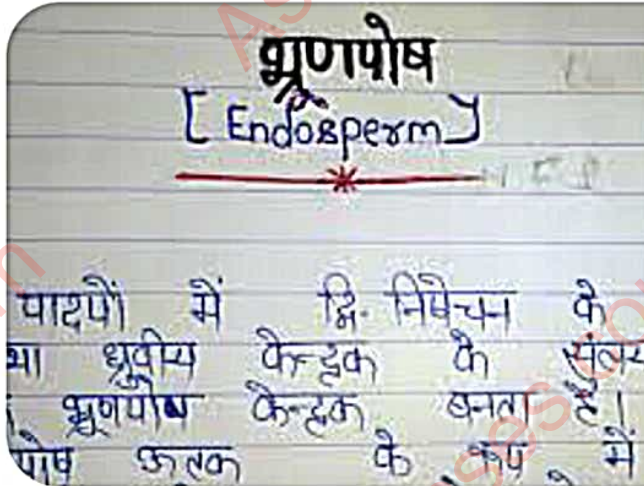 भ्रूणपोष
[Endosperm]
पादपों में द्वि-निषेचन के
था ध्रुवीय केन्द्रक के संलय
भ्रूणपोष केन्द्रक बनता है।
पोष ऊतक के रूप में